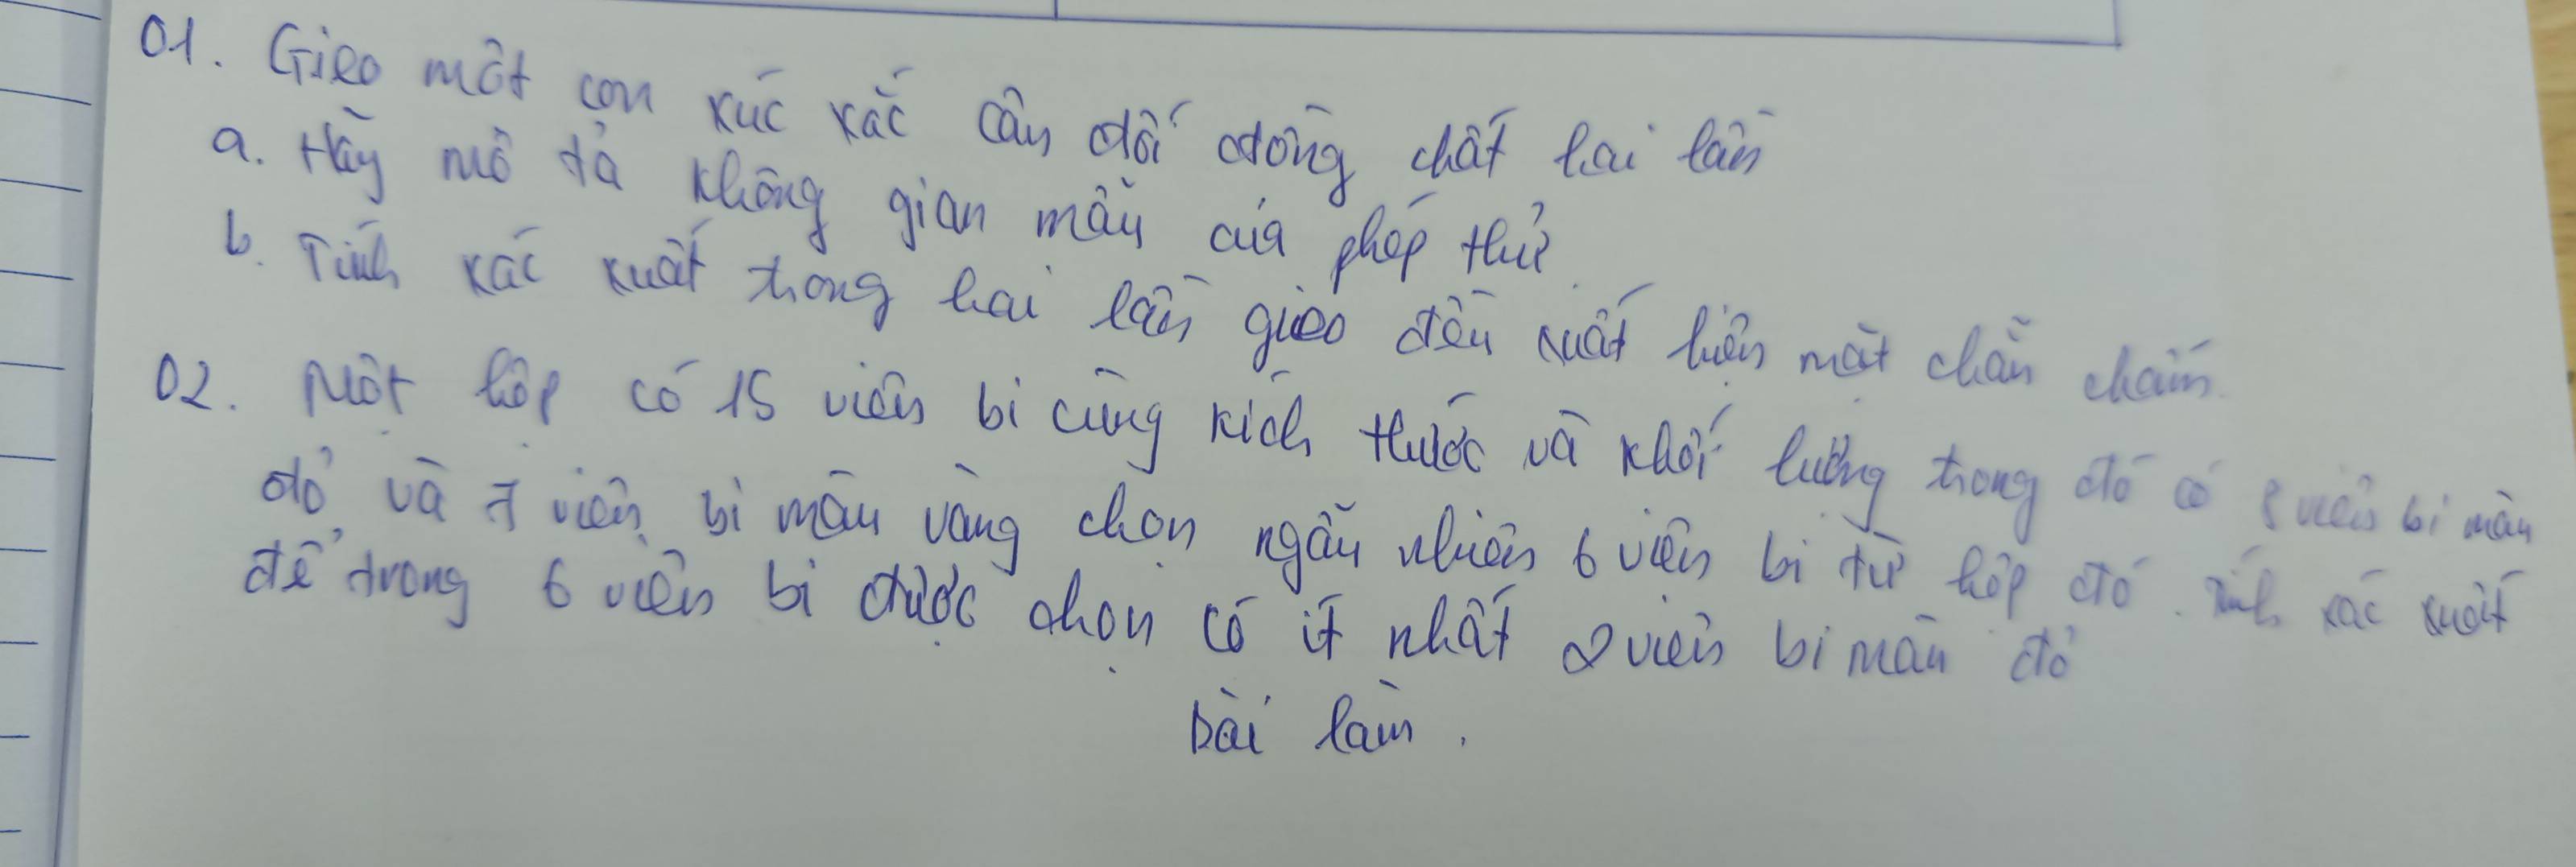 01. Gieo một con xúc xắc cân đối đồng chất hai lần
a. Hãy mô tả không gian mẫu của phép thử
b. Tính xác xuất trong hai lần gieo đều xuất hiện mặt chẵn chấm.
02. Một hộp có 15 viên bi cùng kích thước và khối lượng trong đó có 8 viên bi màu
đỏ và 7 viên bi màu vàng chọn ngẫu nhiên 6 viên bi từ hộp đó. Tính xác xuất
để trong 6 viên bi được chọn có ít nhất 2 viên bi màu đỏ
Bài làm.